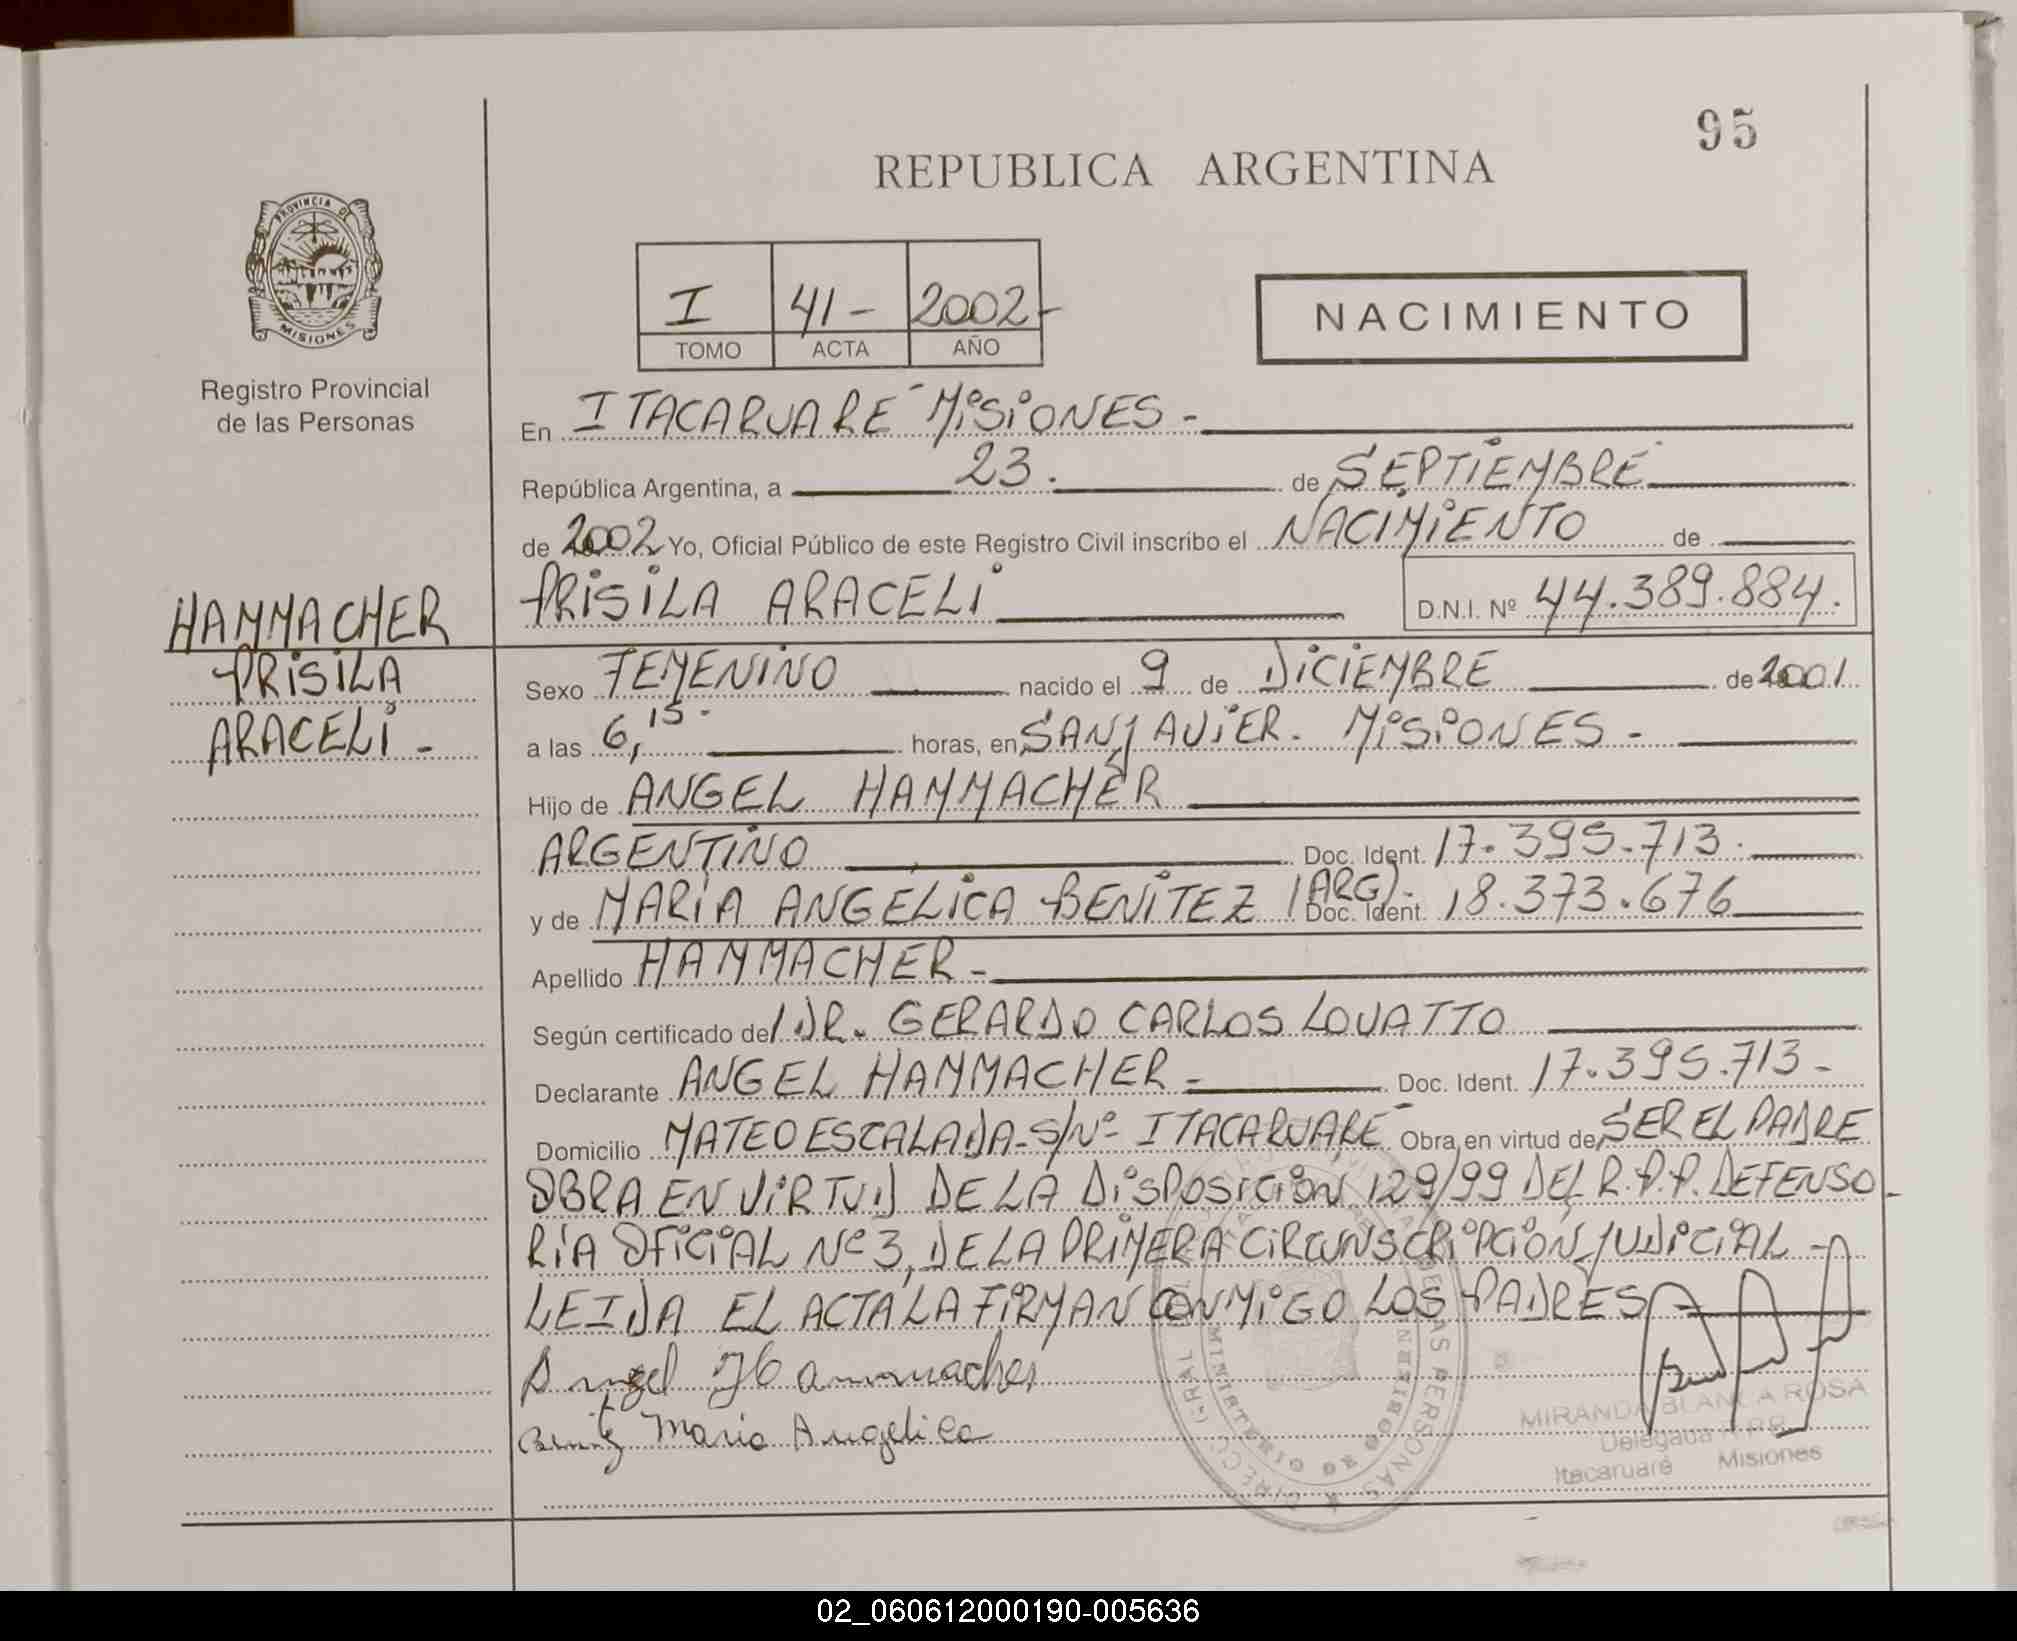 95
REPUBLICA ARGENTINA
PROVINCIA DE
MISIONES
Registro Provincial
de las Personas
I 41- 2002-
TOMO ACTA AÑO
NACIMIENTO
En ITACARUARE MISIONES -
República Argentina, a 23. de SEPTIEMBRE
de 2002 Yo, Oficial Público de este Registro Civil inscribo el NACIMIENTO de
PRISILA ARACELI D.N.I. Nº 44.389.884.
HAMMACHER
PRISILA
ARACELI -
Sexo FEMENINO nacido el 9 de DICIEMBRE de 2001
a las 6,15. horas, en SAN JAVIER. MISIONES -
Hijo de ANGEL HAMMACHER
ARGENTINO Doc. Ident. 17.395.713.
y de MARIA ANGELICA BENITEZ (ARG)- Doc. Ident. 18.373.676
Apellido HAMMACHER -
Según certificado del DR. GERARDO CARLOS LOVATTO
Declarante ANGEL HAMMACHER - Doc. Ident. 17.395.713-
Domicilio MATEO ESCALADA-S/Nº- ITACARUARE Obra en virtud de SER EL PADRE
OBRA EN VIRTUD DE LA DISPOSICION 129/99 DEL R.P.P. DEFENSO
RIA OFICIAL Nº 3, DE LA PRIMERA CIRCUNSCRIPCION JUDICIAL -
LEIDA EL ACTA LA FIRMAN CONMIGO LOS PADRES
Angel Hammacher
Benitez Maria Angelica
MIRANDA BLANCA ROSA
Delegada R.P.P.
Itacaruaré Misiones
MINISTERIO DE GOBIERNO
02_060612000190-005636